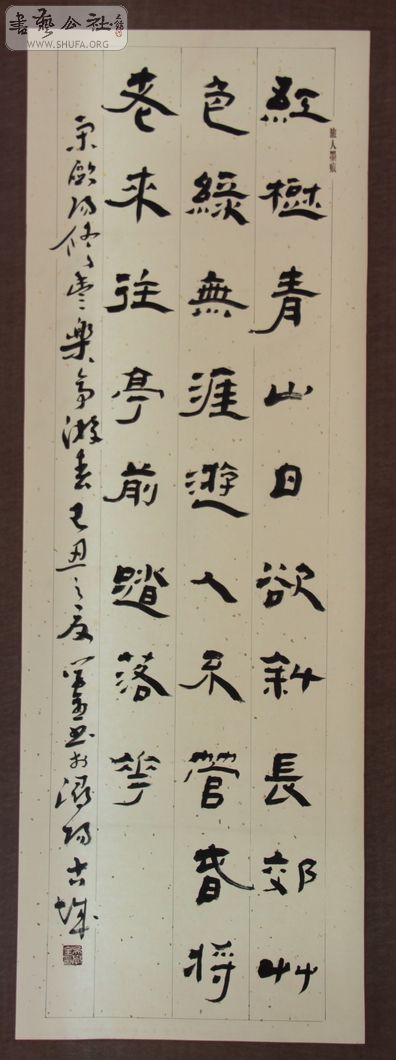 書藝公社
www.SHUFA.ORG
人墨痕
紅樹青山日欲斜長郊艸
色綠無涯遊人不管春將
老來往亭前踏落花
宋歐陽修豐樂亭游春己丑之夏書於陽古城